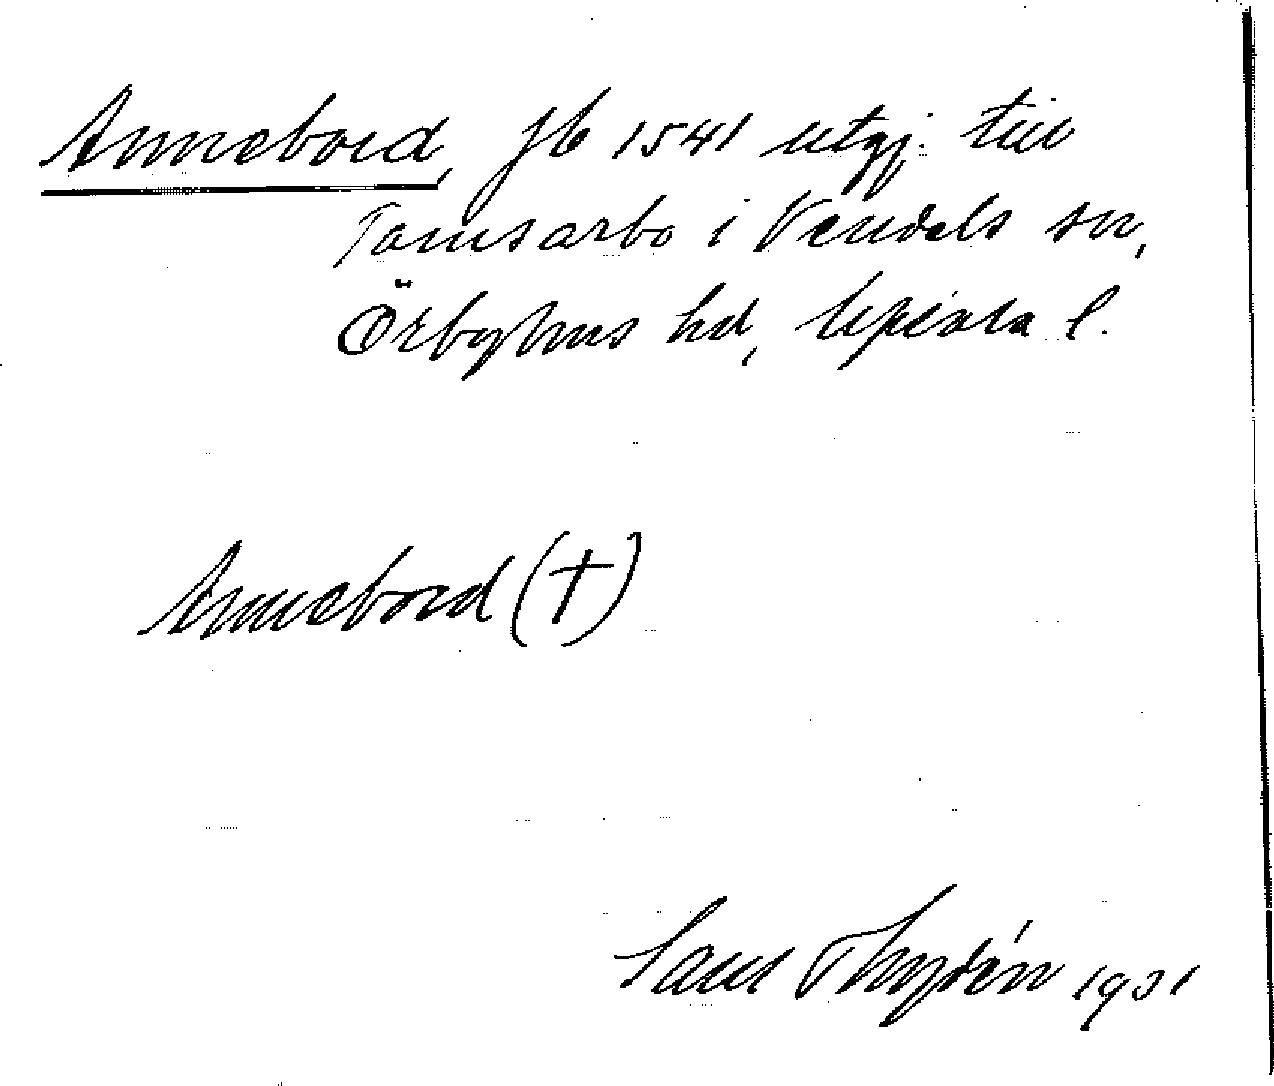 Annebord, Jb 1541 utgj. till
Tomsarbo i Vendels sn,
Örbyhus hd, Upsala l.
Annebord (†)
Thydén 1931